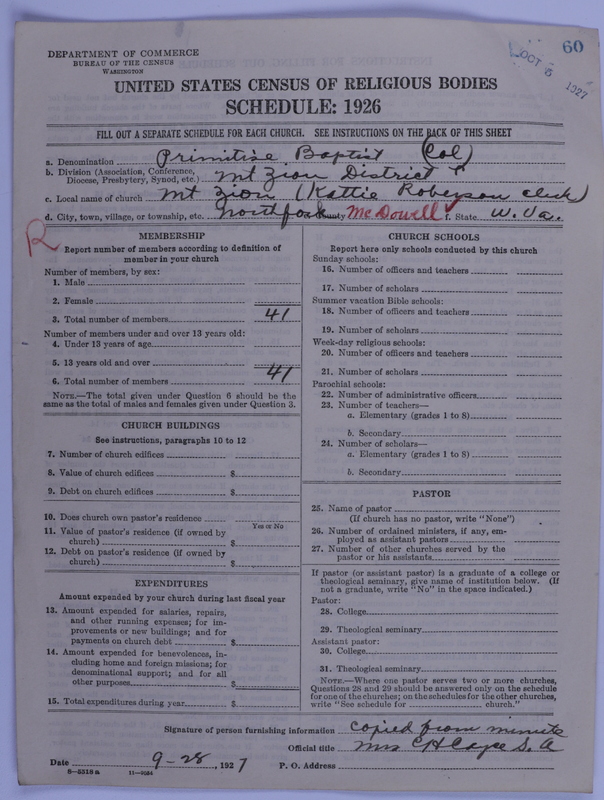 60
OCT 5 1927
DEPARTMENT OF COMMERCE
BUREAU OF THE CENSUS
WASHINGTON
UNITED STATES CENSUS OF RELIGIOUS BODIES
SCHEDULE: 1926
FILL OUT A SEPARATE SCHEDULE FOR EACH CHURCH. SEE INSTRUCTIONS ON THE BACK OF THIS SHEET
a. Denomination Primitive Baptist (Col)
b. Division (Association, Conference, Diocese, Presbytery, Synod, etc.) Mt Zion District
c. Local name of church Mt Zion (Kattie Roberson clerk)
d. City, town, village, or township, etc. Northfork County McDowell f. State W. Va.
R
MEMBERSHIP
Report number of members according to definition of
member in your church
Number of members, by sex:
1. Male
2. Female
3. Total number of members 41
Number of members under and over 13 years old:
4. Under 13 years of age
5. 13 years old and over
6. Total number of members 41
NOTE.—The total given under Question 6 should be the
same as the total of males and females given under Question 3.
CHURCH BUILDINGS
See instructions, paragraphs 10 to 12
7. Number of church edifices
8. Value of church edifices $
9. Debt on church edifices $
10. Does church own pastor's residence
Yes or No
11. Value of pastor's residence (if owned by
church) $
12. Debt on pastor's residence (if owned by
church) $
EXPENDITURES
Amount expended by your church during last fiscal year
13. Amount expended for salaries, repairs,
and other running expenses; for im-
provements or new buildings; and for
payments on church debt $
14. Amount expended for benevolences, in-
cluding home and foreign missions; for
denominational support; and for all
other purposes $
15. Total expenditures during year $
CHURCH SCHOOLS
Report here only schools conducted by this church
Sunday schools:
16. Number of officers and teachers
17. Number of scholars
Summer vacation Bible schools:
18. Number of officers and teachers
19. Number of scholars
Week-day religious schools:
20. Number of officers and teachers
21. Number of scholars
Parochial schools:
22. Number of administrative officers
23. Number of teachers—
a. Elementary (grades 1 to 8)
b. Secondary
24. Number of scholars—
a. Elementary (grades 1 to 8)
b. Secondary
PASTOR
25. Name of pastor
(If church has no pastor, write "None")
26. Number of ordained ministers, if any, em-
ployed as assistant pastors
27. Number of other churches served by the
pastor or his assistants
If pastor (or assistant pastor) is a graduate of a college or
theological seminary, give name of institution below. (If
not a graduate, write "No" in the space indicated.)
Pastor:
28. College
29. Theological seminary
Assistant pastor:
30. College
31. Theological seminary
NOTE.—Where one pastor serves two or more churches,
Questions 28 and 29 should be answered only on the schedule
for one of the churches; on the schedules for the other churches,
write "See schedule for church."
Signature of person furnishing information copied from minute
Official title Mrs C H Cayce S. A
Date 9-28, 1927 P. O. Address
8—5518a 11—9534